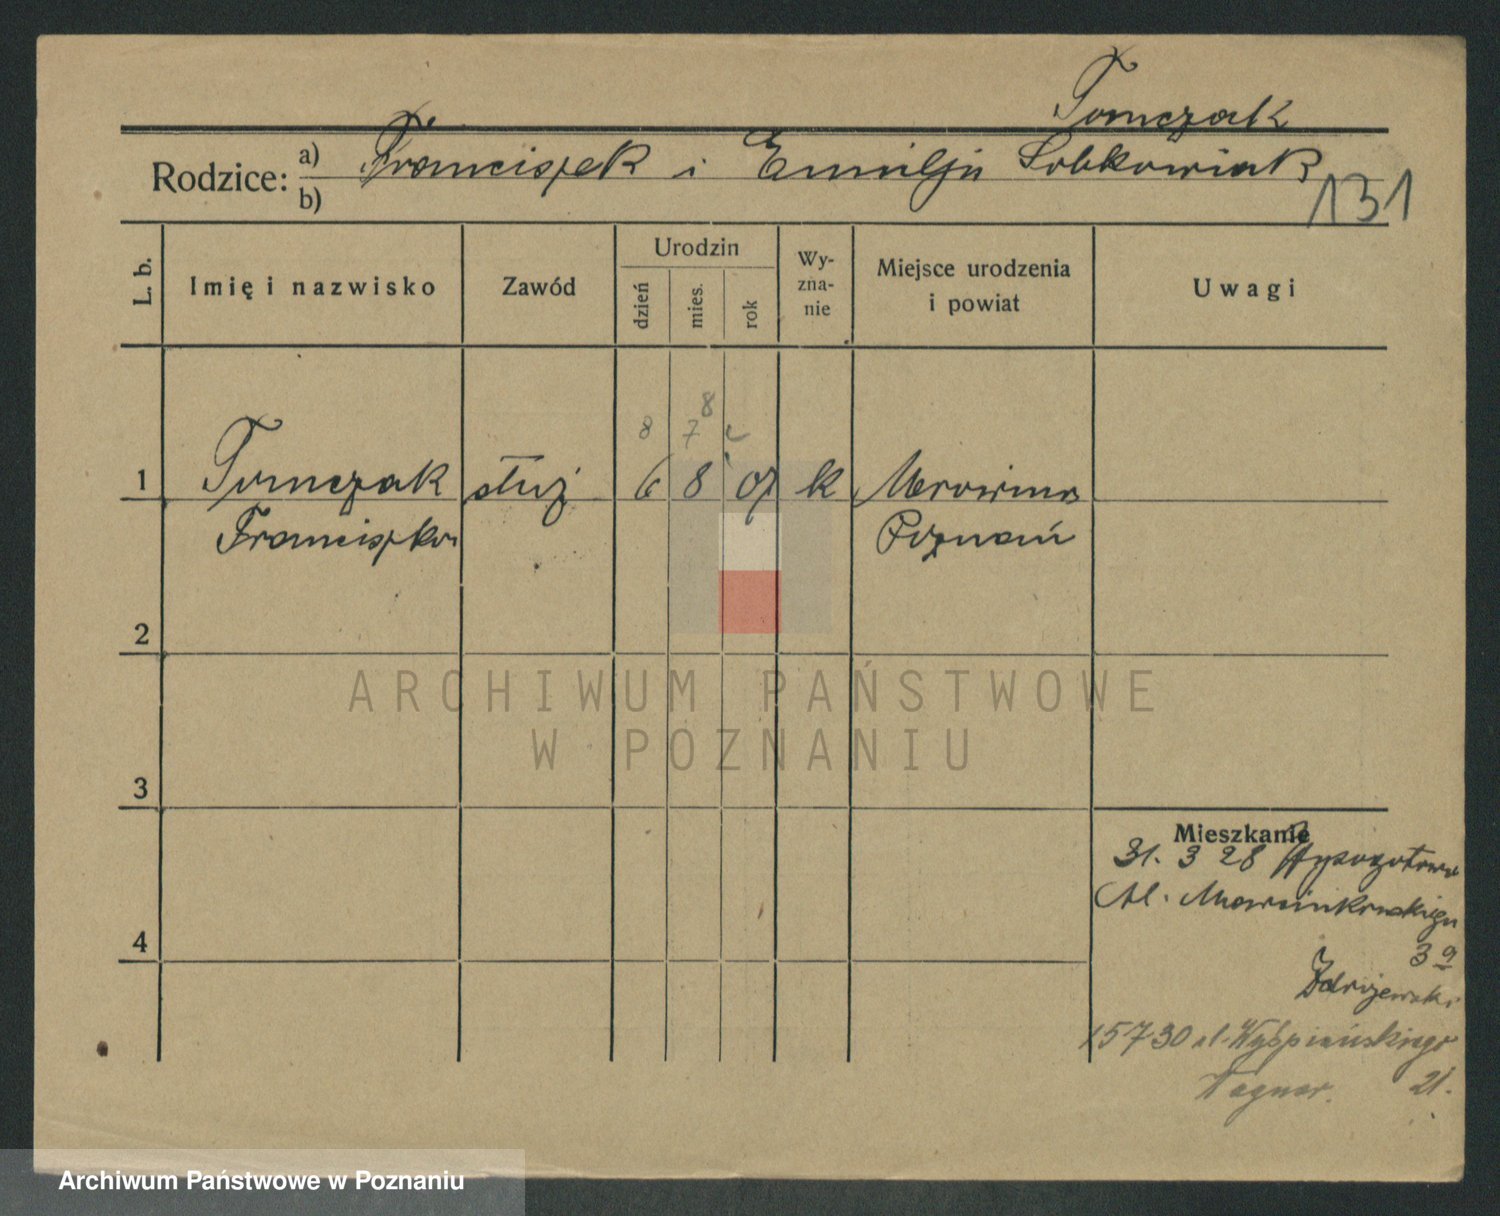 Tomczak
Rodzice: a) Franciszek i Emilja Sobkowiak
b)
131
L. b.
Imię i nazwisko
Zawód
Urodzin
dzień
mies.
rok
Wy-
zna-
nie
Miejsce urodzenia
i powiat
Uwagi
8
8 7
1 Tomczak służ 6 8 07 k
Franciszka Poznań
2
ARCHIWUM PAŃSTWOWE
W POZNANIU
3
Mieszkanie
31. 3 28
Al. Marcinkowskiego
3a
4
15 7 30 ul. Wyśpiańskiego
Wagner. 21.
Archiwum Państwowe w Poznaniu